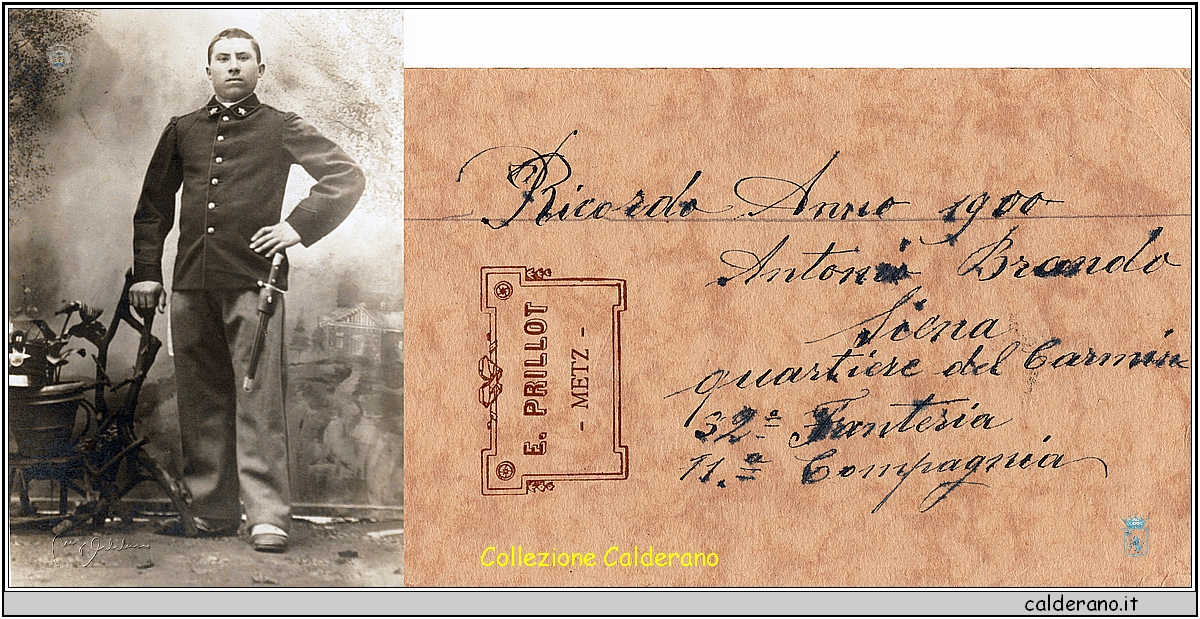 Ricordo Anno 1900
Antonio Brando
Siena
quartiere del Carmin
32ª Fanteria
11.ª Compagnia
E. PRILLOT
- METZ -
Collezione Calderano
calderano.it